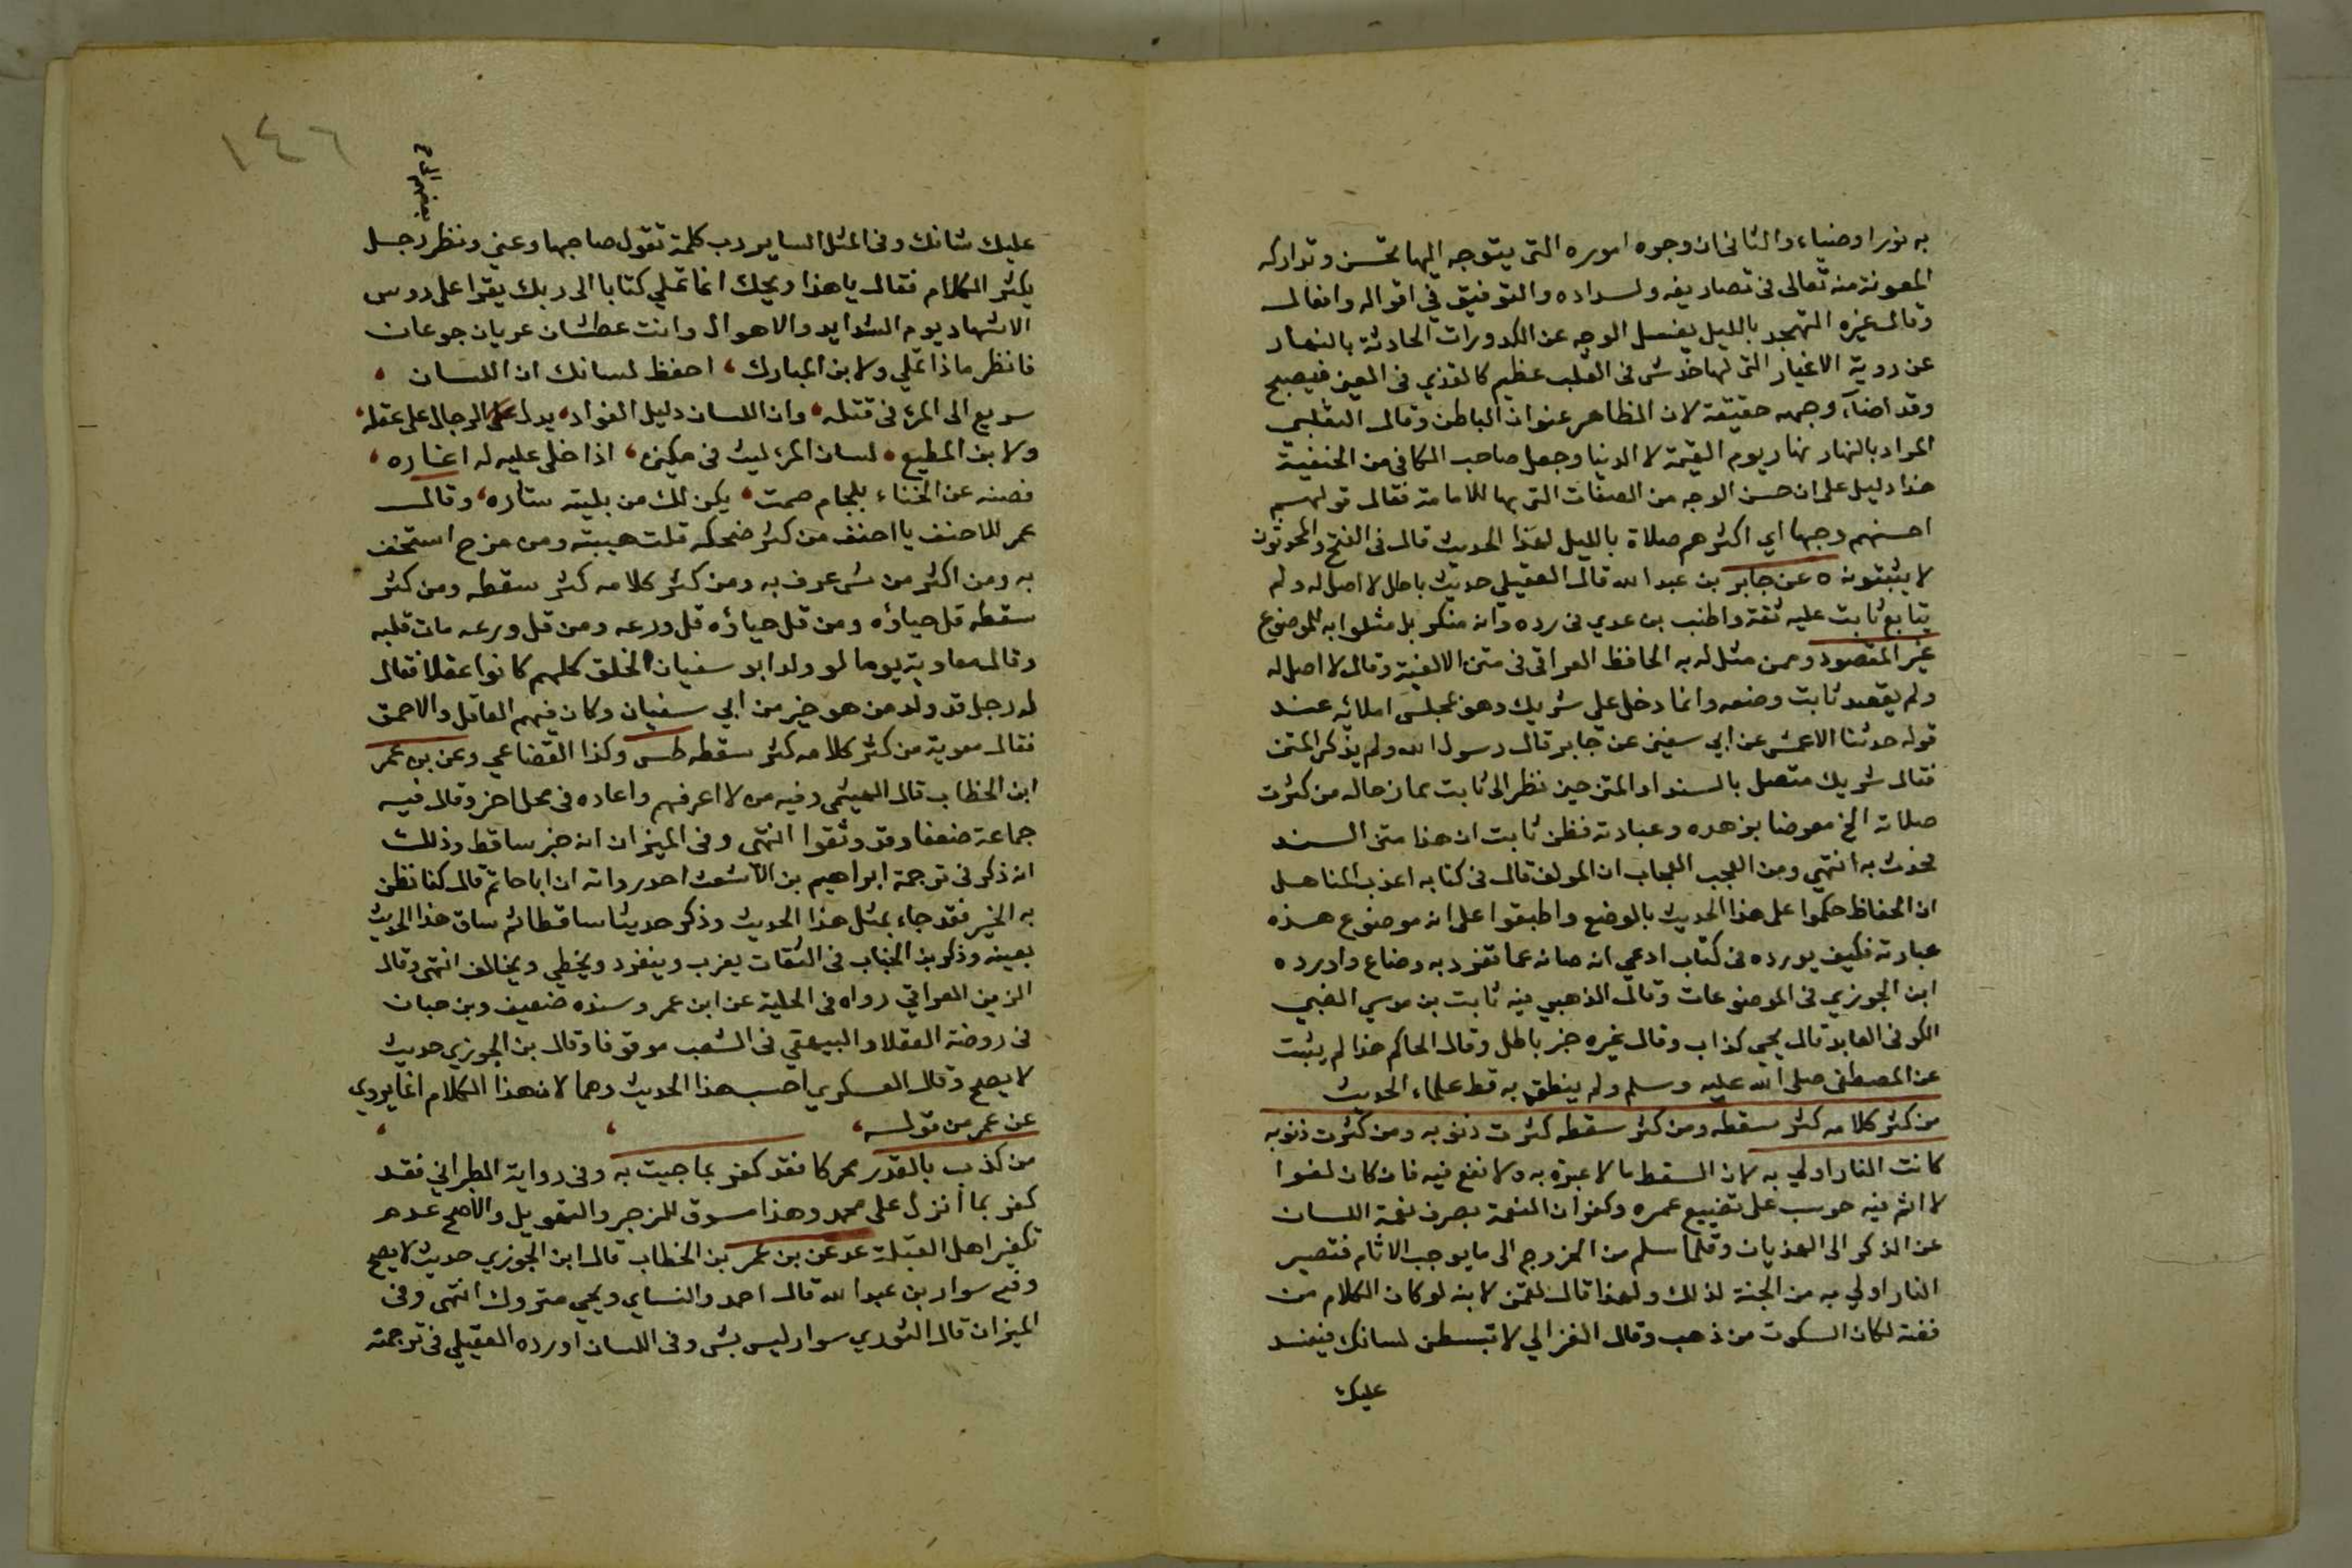 به نورا وضياء والثاني ان وجوه اموره التي يتوجه اليها تحسن وتداركه
المعونة منه تعالى في تصاريفه ولسداده والتوفيق في اقواله وافعاله
وقال غيره التهجد بالليل يغسل الوجه عن الكدورات الحادثة بالنهار
عن روية الاغيار التي لها خدش في القلب عظيم كالقذي في العين فيصبح
وقد اضآء وجهه حقيقة لان الظاهر عنوان الباطن وقال الثعلبي
المراد بالنهار نهار يوم القيمة لا الدنيا وجعل صاحب الكافي من الحنفية
هذا دليل على ان حسن الوجه من الصفات التي بها للامامة فقال قولهم
احسنهم وجها اي اكثرهم صلاة بالليل لهذا الحديث قال في الفتح والمحدثون
لا يثبتونه ه عن جابر بن عبد الله قال العقيلي حديث باطل لا اصل له ولم
يتابع ثابت عليه ثقة واطنب بن عدي في رده وانه منكر بل مثلوا به للموضوع
غير المقصود وممن مثل له به الحافظ العراقي في متن الالفية وقال لا اصل له
ولم يقصد ثابت وضعه وانما دخل علي شريك وهو بمجلس املائه عند
قوله حدثنا الاعمش عن ابي سفين عن جابر قال رسول الله ولم يذكر المتن
فقال شريك متصل بالسند او المتن حين نظر الى ثابت ممازحاله من كثرت
صلاته الخ معرضا بزهده وعبادته فظن ثابت ان هذا متن السند
فحدث به انتهي ومن العجب العجاب ان المولف قال في كتابه اعذب المناهل
ان الحفاظ حكموا على هذا الحديث بالوضع واطبقوا على انه موضوع هذه
عبارته فكيف يورده في كتاب ادعي انه صانه عما تفرد به وضاع واورده
ابن الجوزي في الموضوعات وقال الذهبي فيه ثابت بن موسي الضبي
الكوفي العابد قال يحيى كذاب وقال غيره خبر باطل وقال الحاكم هذا لم يثبت
عن المصطفى صلى الله عليه وسلم ولم ينطق به قط علماء الحديث
من كثر كلامه كثر سقطه ومن كثر سقطه كثرت ذنوبه ومن كثرت ذنوبه
كانت النار اولي به لان السقط ما لا عبرة به ولا نفع فيه فان كان لغوا
لا اثم فيه حوسب على تضييع عمره وكفران النعمة بصرف نعمة اللسان
عن الذكر الى الهذيان وقلما سلم من الخروج الى ما يوجب الاثام فتصير
النار اولي به من الجنة لذلك ولهذا قال لقمن لابنه لو كان الكلام من
فضة لكان السكوت من ذهب وقال الغزالي لا تبسطن لسانك فيفسد
عليك
١٤٦
عليك شانك وفي المثل الساير رب كلمة تقول صاحبها دعني ونظر رجل
يكثر الكلام فقال يا هذا ويحك انما تملي كتابا الى ربك يقرا على روس
الاشهاد يوم الشدايد والاهوال وانت عطشان عريان جوعان
فانظر ماذا تملي ولابن المبارك، احفظ لسانك ان اللسان،
سريع الى المرء في قتله، وان اللسان دليل الفواد، يدل الرجال على عقله،
ولابن المطيع، لسان المرء ليث في كمين، اذا خلى عليه له اغاره،
فصنه عن الخناء بلجام صمت، يكن لك من بليته ستاره، وقال
عمر للاحنف يا احنف من كثر ضحكه قلت هيبته ومن مزح استخف
به ومن اكثر من شي عرف به ومن كثر كلامه كثر سقطه ومن كثر
سقطه قل حياؤه ومن قل حياؤه قل ورعه ومن قل ورعه مات قلبه
وقال معاوية يوما لو ولد ابو سفيان الخلق كلهم كانوا عقلا فقال
له رجل قد ولد من هو خير من ابي سفيان وكان فيهم العاقل والاحمق
فقال معوية من كثر كلامه كثر سقطه طس وكذا القضاعي وعن بن عمر
ابن الخطاب قال الهيثمي وفيه من لا اعرفهم واعاده في محل اخر وقال فيه
جماعة ضعفا وقد وثقوا انتهى وفي الميزان انه خبر ساقط وذلك
انه ذكر في ترجمة ابراهيم بن الاشعث احد رواته ان ابا حاتم قال كنا نظن
به الخير فقد جاء بمثل هذا الحديث وذكر حديثا ساقطا ثم ساق هذا الحديث
بعينه وذكر بن الحباب في الثقات يغرب وينفرد ويخطي ويخالف انتهى وقال
الزين العراقي رواه في الحلية عن ابن عمر وسنده ضعيف وبن حبان
في روضة العقلا والبيهقي في الشعب موقوفا وقال بن الجوزي حديث
لا يصح وقال العسكري احسب هذا الحديث وهما لان هذا الكلام انما يروي
عن عمر من قوله،
من كذب بالقدر محركا فقد كفر بما جيت به وفي رواية الطبراني فقد
كفر بما أنزل على محمد وهذا مسوق للزجر والتهويل والاصح عدم
تكفير اهل القبلة عد عن بن عمر بن الخطاب قال ابن الجوزي حديث لا يصح
وفيه سوار بن عبد الله قال احمد والنساي ويحي متروك انتهى وفي
الميزان قال الثوري سوار ليس بشي وفي اللسان اورده العقيلي في ترجمته